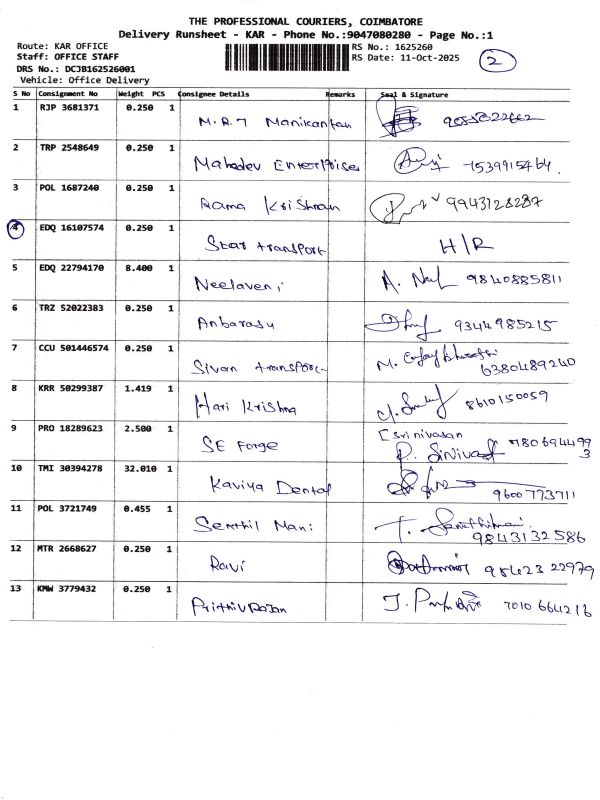 THE PROFESSIONAL COURIERS, COIMBATORE
Delivery Runsheet - KAR - Phone No.:9047080280 - Page No.:1
Route: KAR OFFICE RS No.: 1625260
Staff: OFFICE STAFF RS Date: 11-Oct-2025 2
DRS No.: DCJB162526001
Vehicle: Office Delivery
S No Consignment No Weight PCS Consignee Details Remarks Seal & Signature
1 RJP 3681371 0.250 1 M.R.T Manikantan
2 TRP 2548649 0.250 1 Mahadev Enterprises 7539915464.
3 POL 1687240 0.250 1 Rama Krishnan 9943128287
4 EDQ 16107574 0.250 1 Star transport H/R
5 EDQ 22794170 8.400 1 Neelaveni A. 9840885811
6 TRZ 52022383 0.250 1 Anbarasu 9344985215
7 CCU 501446574 0.250 1 Sivan transport M.
6380489240
8 KRR 50299387 1.419 1 Hari Krishna 8610150059
9 PRO 18289623 2.500 1 SE Forge [Srinivasan
10 TMI 30394278 32.010 1 Kaviya Dental 9600773711
11 POL 3721749 0.455 1 Senthil Mani T.
9843132586
12 MTR 2668627 0.250 1 Ravi 98423 22979
13 KMW 3779432 0.250 1 Prithivrajan J. 7010 664216